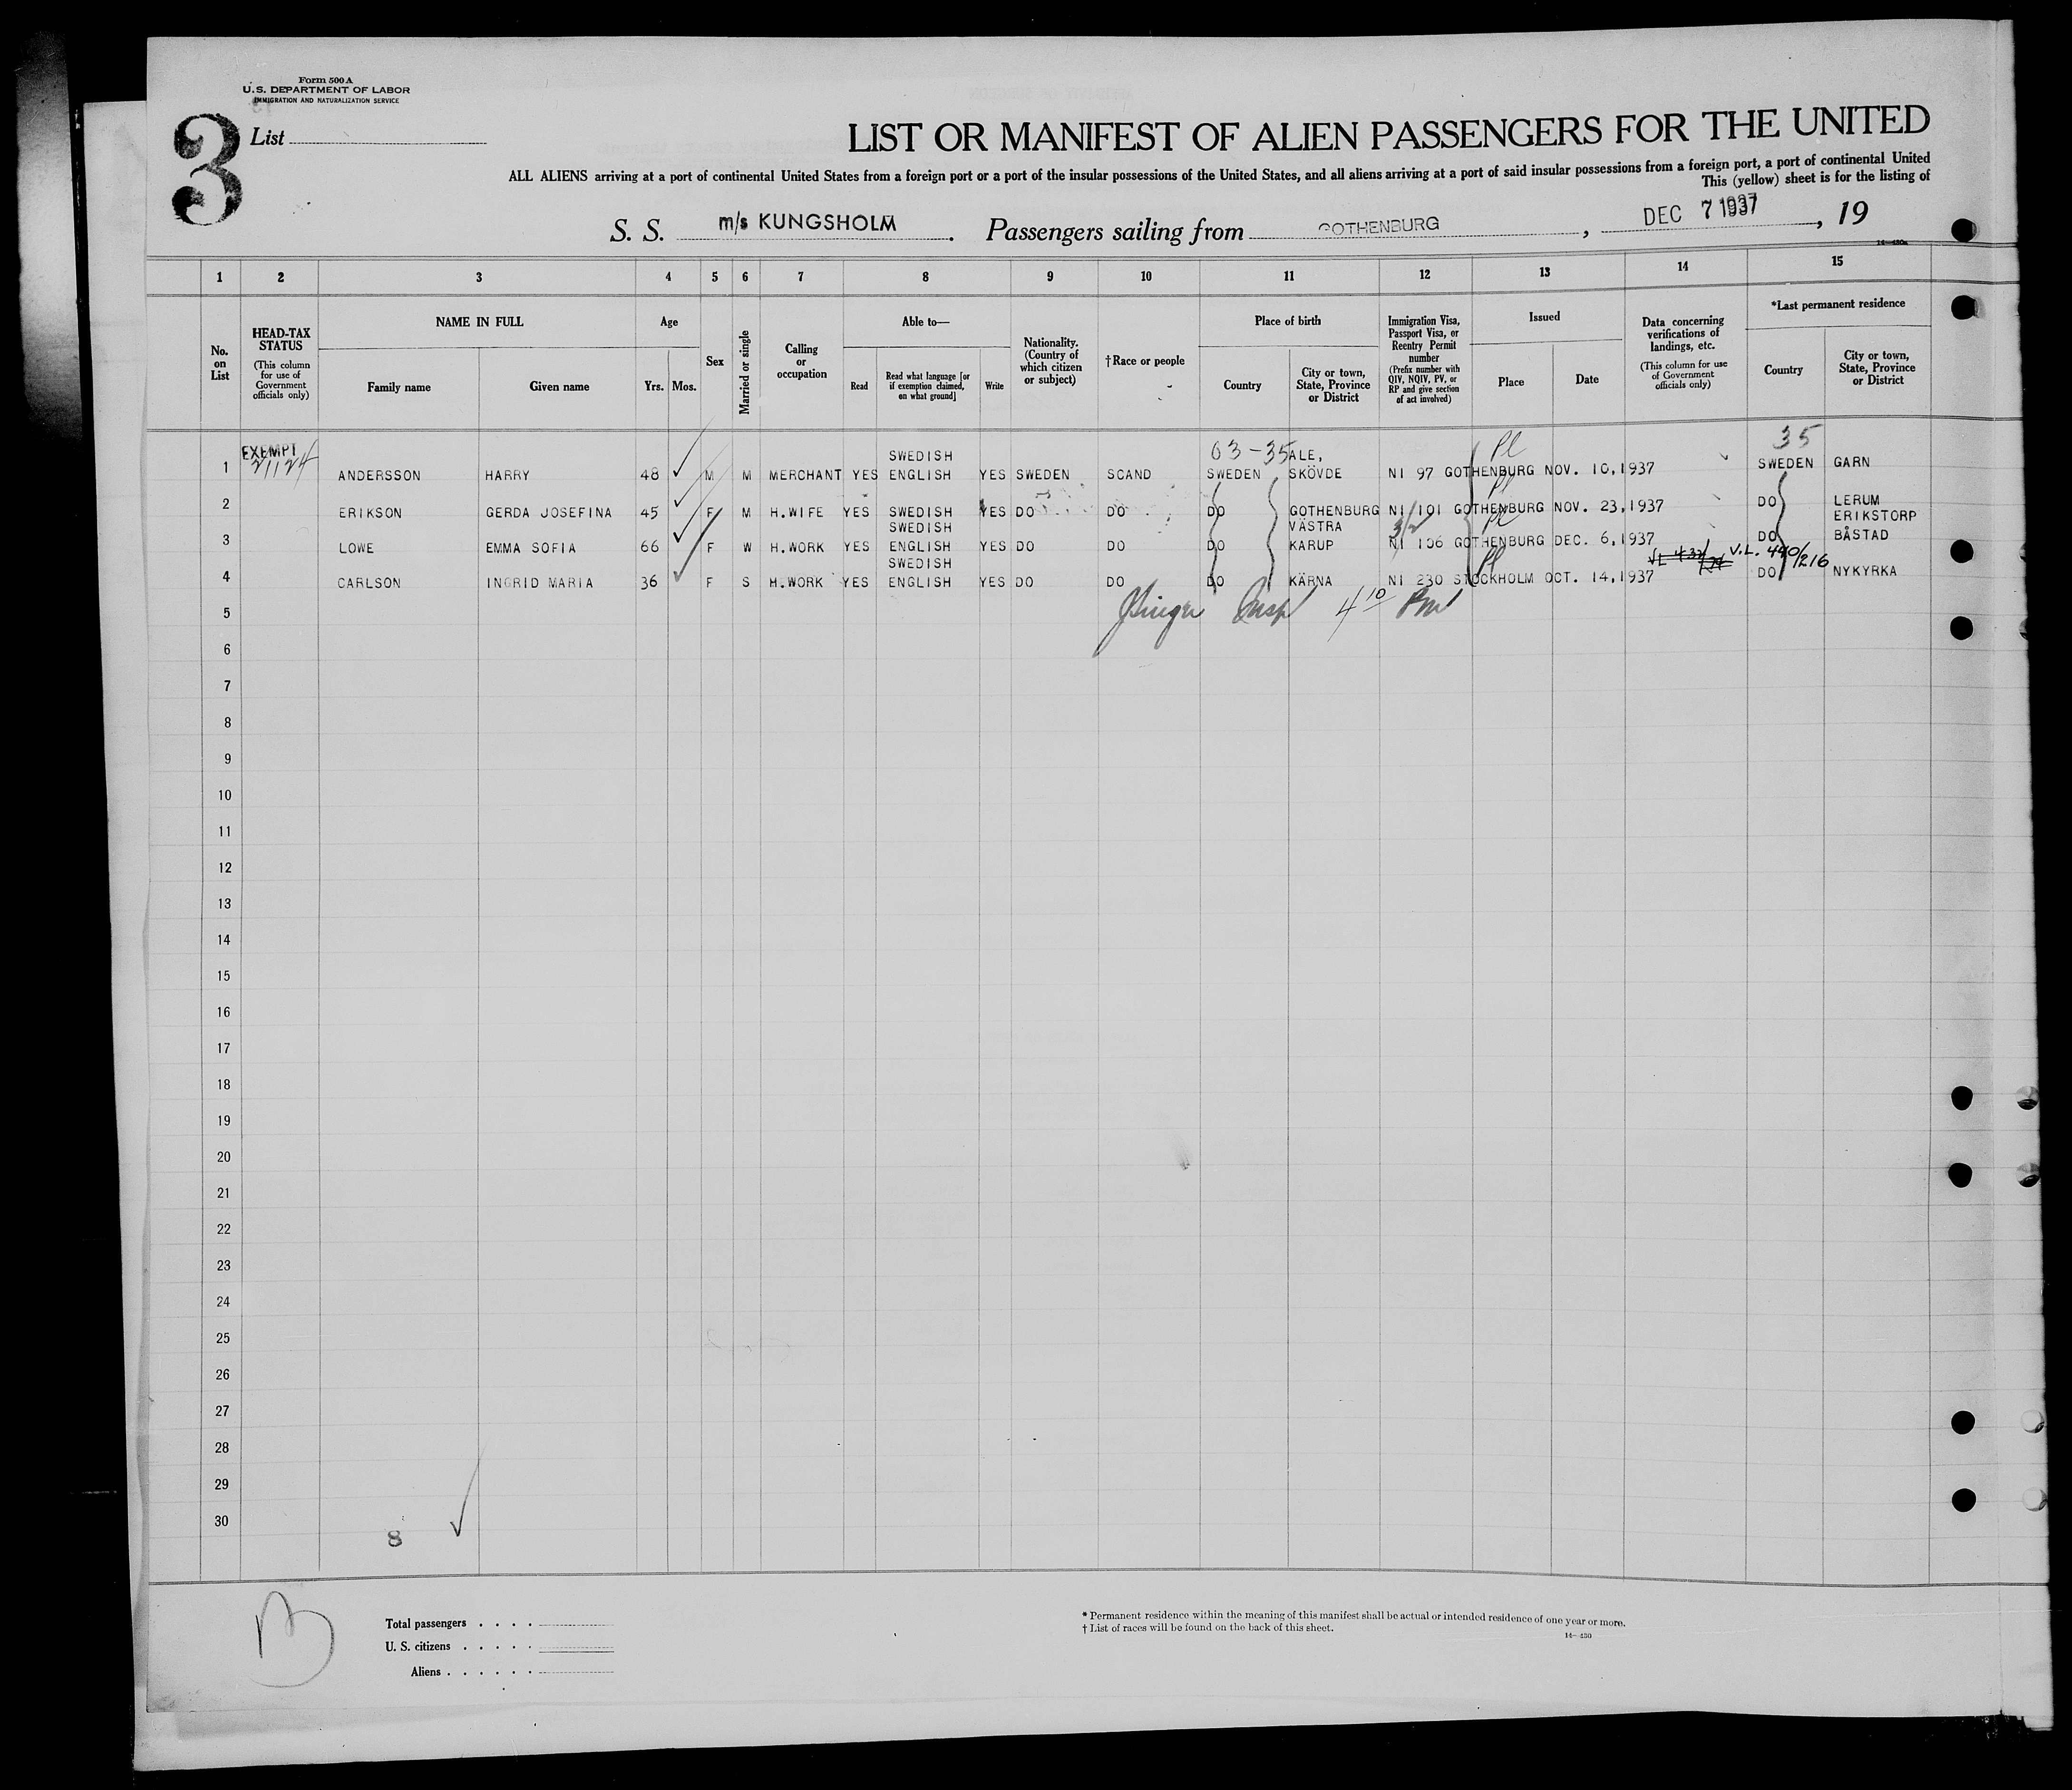 Form 500 A
U.S. DEPARTMENT OF LABOR
IMMIGRATION AND NATURALIZATION SERVICE
3
List
LIST OR MANIFEST OF ALIEN PASSENGERS FOR THE UNITED
ALL ALIENS arriving at a port of continental United States from a foreign port or a port of the insular possessions of the United States, and all aliens arriving at a port of said insular possessions from a foreign port, a port of continental United
This (yellow) sheet is for the listing of
S. S. m/s KUNGSHOLM . Passengers sailing from GOTHENBURG , DEC 7 1937 , 19
1 2 3 4 5 6 7 8 9 10 11 12 13 14 15
No. on List
HEAD-TAX STATUS
(This column for use of Government officials only)
NAME IN FULL
Family name
Given name
Age
Yrs.
Mos.
Sex
Married or single
Calling or occupation
Able to—
Read
Read what language [or if exemption claimed, on what ground]
Write
Nationality. (Country of which citizen or subject)
†Race or people
Place of birth
Country
City or town, State, Province or District
Immigration Visa, Passport Visa, or Reentry Permit number
(Prefix number with QIV, NQIV, PV, or RP and give section of act involved)
Issued
Place
Date
Data concerning verifications of landings, etc.
(This column for use of Government officials only)
*Last permanent residence
Country
City or town, State, Province or District
EXEMPT 03-35 35
SWEDISH ALE,
1 ANDERSSON HARRY 48 M M MERCHANT YES ENGLISH YES SWEDEN SCAND SWEDEN SKÖVDE NI 97 GOTHENBURG NOV. 10,1937 SWEDEN GARN
2 ERIKSON GERDA JOSEFINA 45 F M H.WIFE YES SWEDISH YES DO DO DO GOTHENBURG NI 101 GOTHENBURG NOV. 23,1937 DO LERUM
SWEDISH VÄSTRA ERIKSTORP
3 LOWE EMMA SOFIA 66 F W H.WORK YES ENGLISH YES DO DO DO KARUP NI 106 GOTHENBURG DEC. 6,1937 DO BÅSTAD
SWEDISH V.L. 440/216
4 CARLSON INGRID MARIA 36 F S H.WORK YES ENGLISH YES DO DO DO KÄRNA NI 230 STOCKHOLM OCT. 14,1937 DO NYKYRKA
5 Insp 4 10 Pm
6
7
8
9
10
11
12
13
14
15
16
17
18
19
20
21
22
23
24
25
26
27
28
29
30
8
B
Total passengers
U. S. citizens
Aliens
* Permanent residence within the meaning of this manifest shall be actual or intended residence of one year or more.
† List of races will be found on the back of this sheet.
14—430